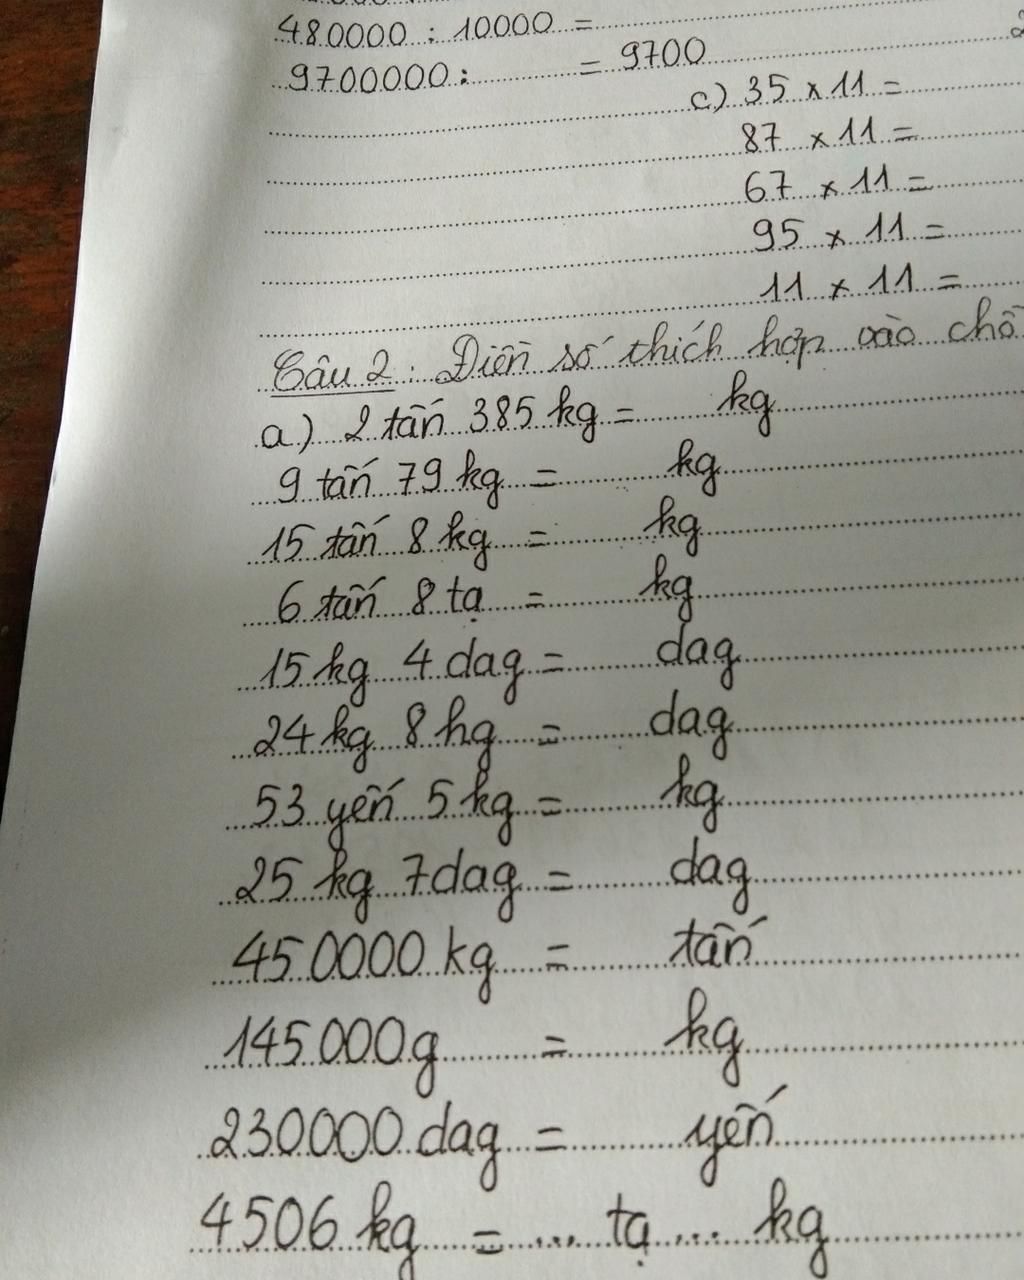 480000 : 10000 =
9700000 : = 9700
c) 35 x 11 =
87 x 11 =
67 x 11 =
95 x 11 =
11 x 11 =
Câu 2 : Điền số thích hợp vào chỗ
a) 2 tấn 385 kg = kg
9 tấn 79 kg = kg
15 tấn 8 kg = kg
6 tấn 8 tạ = kg
15 kg 4 dag = dag
24 kg 8 hg = dag
53 yến 5 kg = kg
25 kg 7 dag = dag
450000 kg = tấn
145000g = kg
230000 dag = yến
4506 kg = ... tạ ... kg